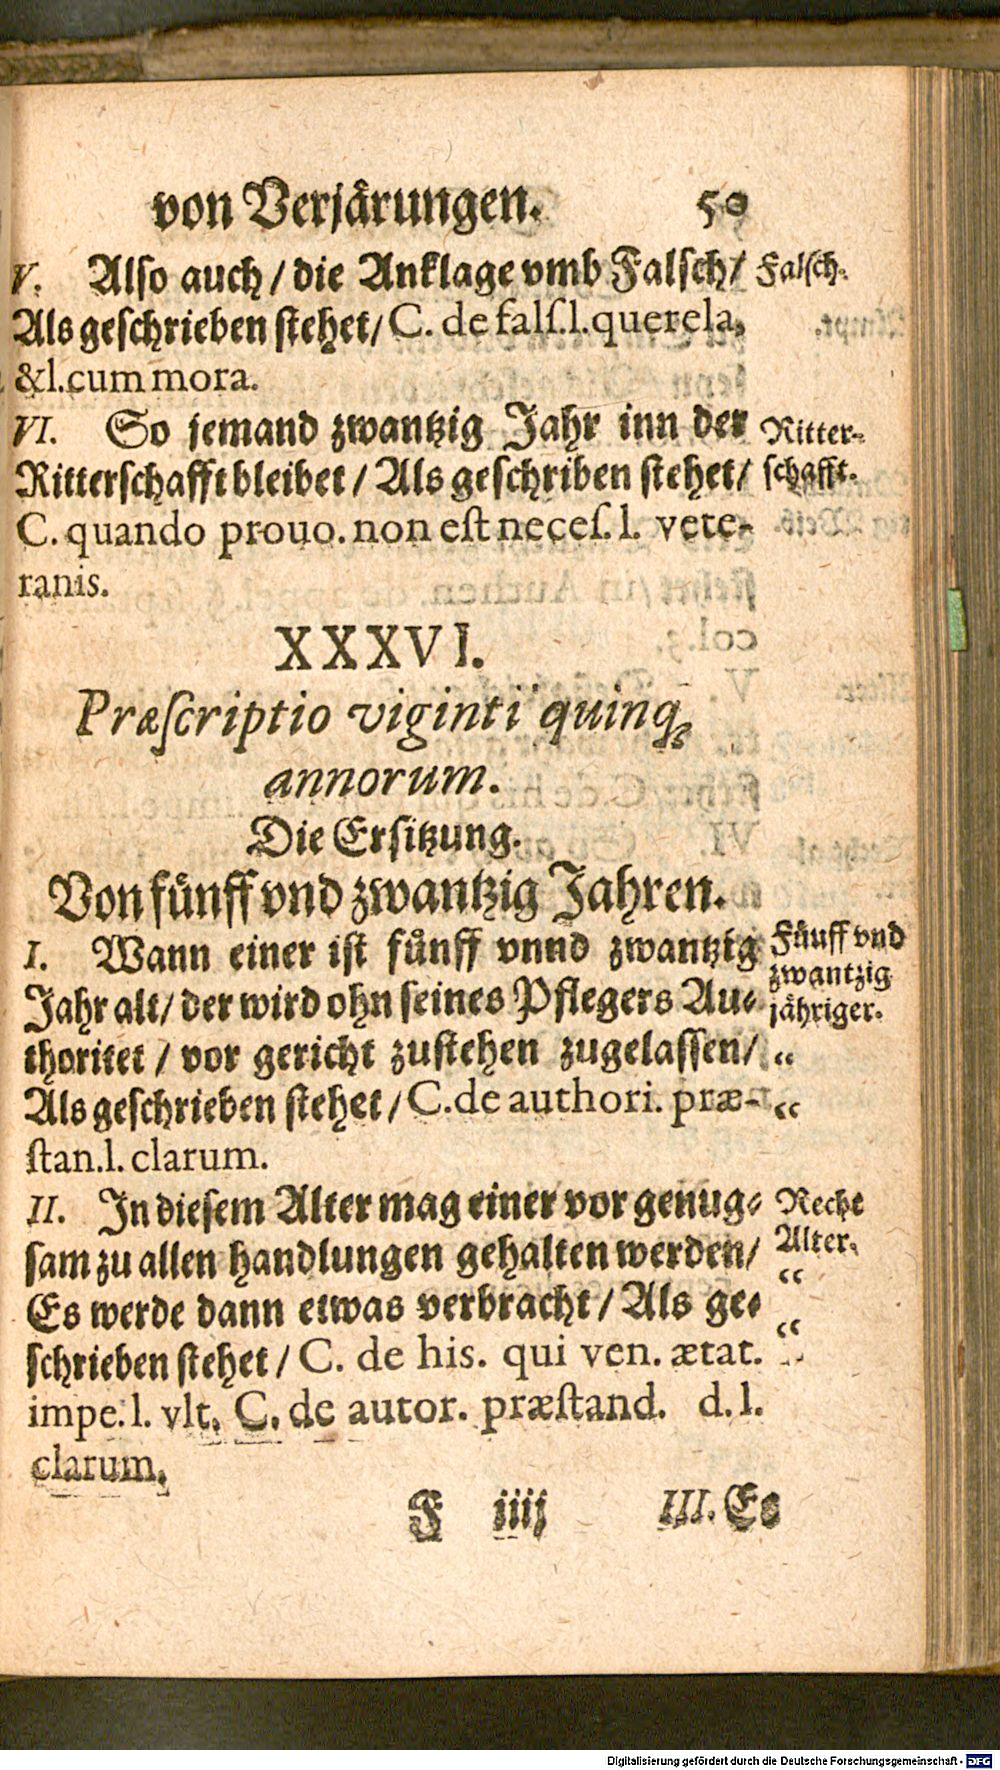 von Verjårungen. 50
V. Also auch / die Anklage vmb Falsch / Falsch.
Als geschrieben stehet / C. de falſ. l. querela,
& l. cum mora.
VI. So jemand zwantzig Jahr inn der Ritter-
Ritterschafft bleibet / Als geschriben stehet / schafft.
C. quando prouo. non eſt neceſ. l. vete-
ranis.
XXXVI.
Præſcriptio viginti quinq;
annorum.
Die Ersitzung.
Von fůnff vnd zwantzig Jahren.
I. Wann einer ist fůnff vnnd zwantzig Fůuff vnd
Jahr alt / der wird ohn seines Pflegers Au- zwantzig
jähriger.
thoritet / vor gericht zustehen zugelassen / “
Als geschrieben stehet / C. de authori. præ- “
ſtan. l. clarum.
II. In diesem Alter mag einer vor genug- Recht
sam zu allen handlungen gehalten werden / Alter.
“
Es werde dann etwas verbracht / Als ge- “
schrieben stehet / C. de his. qui ven. ætat.
impe. l. vlt. C. de autor. præſtand. d. l.
clarum.
F iiij III. Es
Digitalisierung gefördert durch die Deutsche Forschungsgemeinschaft - DFG